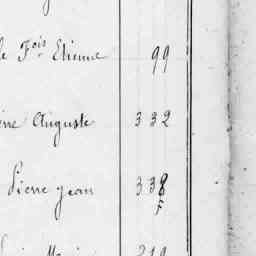 le Fois Etienne 99
erre Auguste 332
Pierre Jean 338